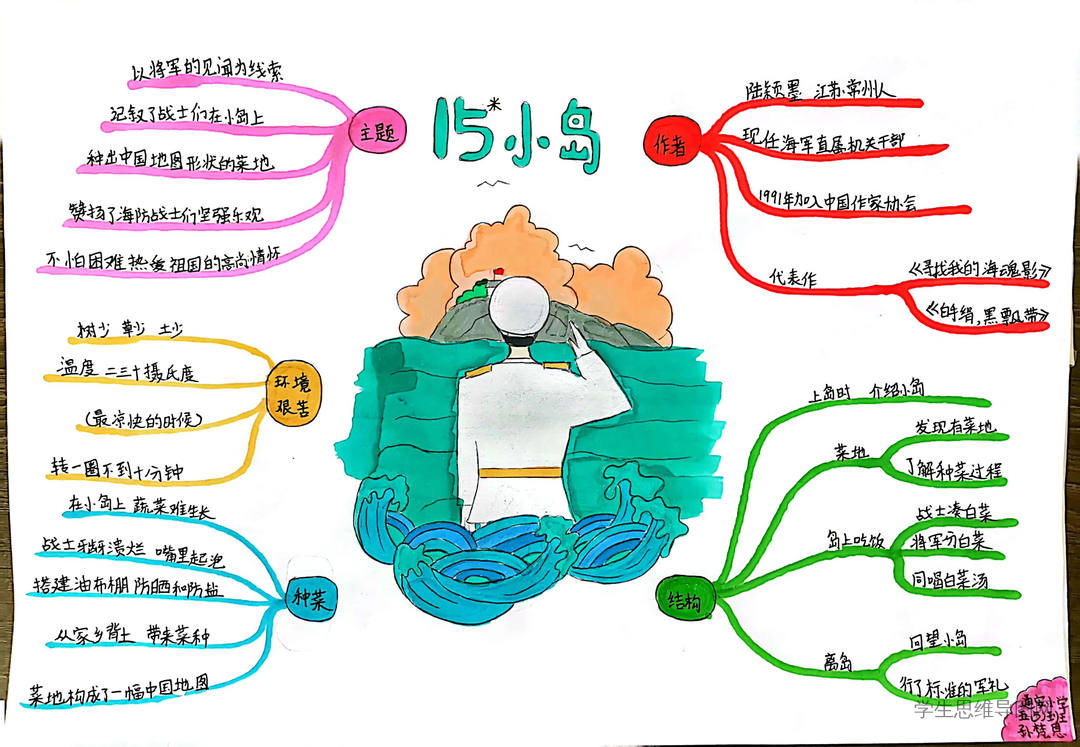 15米小岛
主题
以将军的见闻为线索
记叙了战士们在小岛上
种出中国地图形状的菜地
赞扬了海防战士们坚强乐观
不怕困难热爱祖国的高尚情怀
作者
陆颖墨 江苏常州人
现任海军直属机关干部
1991年加入中国作家协会
代表作
《寻找我的海魂影》
《白手绢,黑飘带》
环境
艰苦
树少 草少 土少
温度 二三十摄氏度
(最凉快的时候)
转一圈不到十分钟
种菜
在小岛上 蔬菜难生长
战士牙龈溃烂 嘴里起泡
搭建油布棚 防晒和防盐
从家乡背土 带来菜种
菜地构成了一幅中国地图
结构
上岛时 介绍小岛
菜地
发现有菜地
了解种菜过程
岛上吃饭
战士凑白菜
将军分白菜
同唱白菜汤
离岛
回望小岛
行了标准的军礼
学生思维导图
通安小学